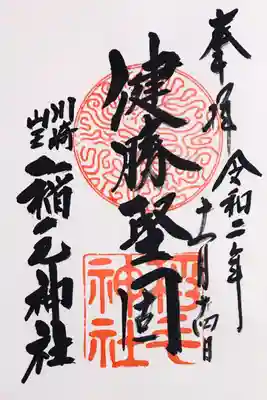 奉拝
令和二年
十一月十四日
健勝堅固
川崎
山王
稲毛神社
稲毛
神社